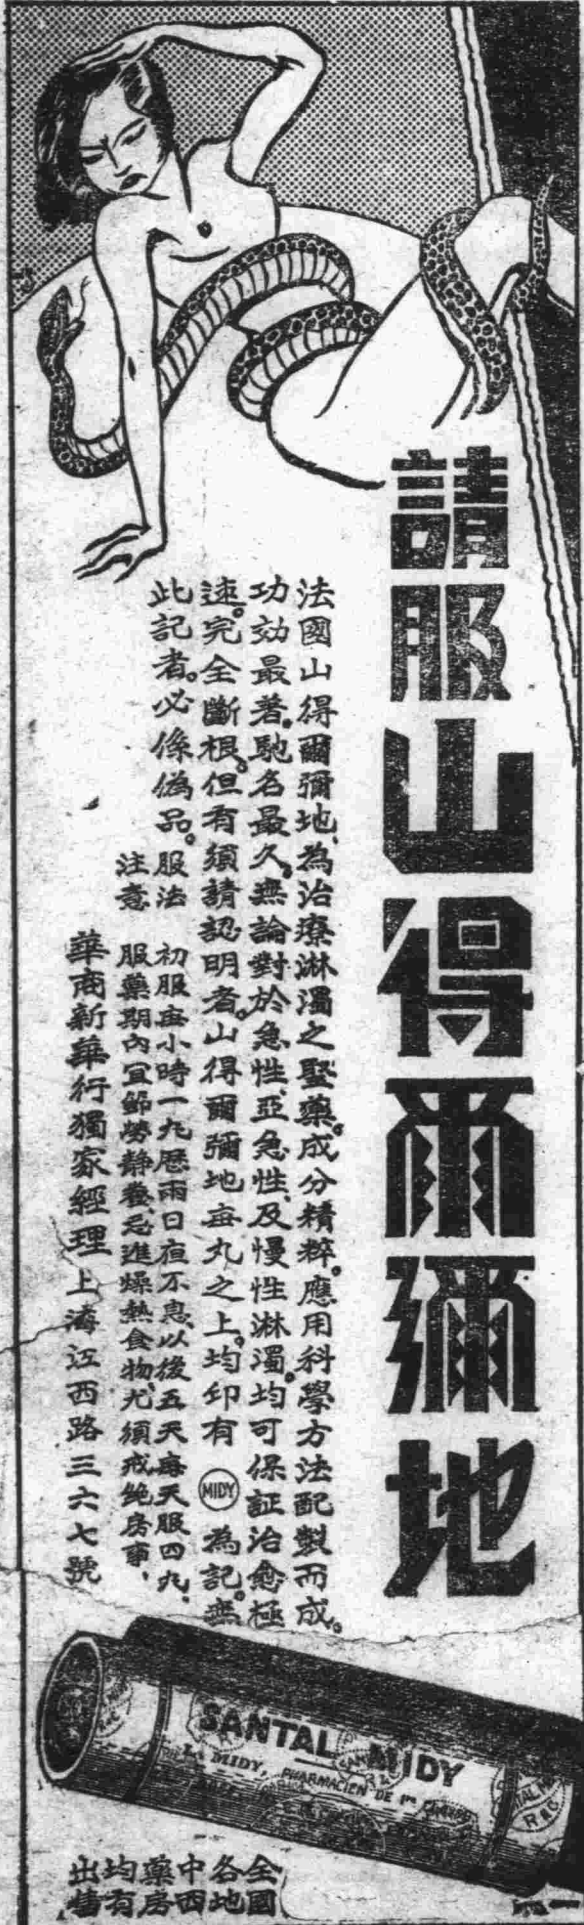 請服山得爾彌地
法國山得爾彌地、為治療淋濁之聖藥。成分精粹。應用科學方法配製而成。
功効最著。馳名最久。無論對於急性、亞急性、及慢性淋濁。均可保証治愈極
速。完全斷根。但有須請認明者。山得爾彌地每丸之上。均印有 MIDY 為記。無
此記者。必係偽品。
服法 初服每小時一丸歷兩日夜不息、以後五天每天服四丸、
注意 服藥期內宜節勞靜養、忌進燥熱食物、尤須戒絕房事、
華商新華行獨家經理 上海江西路三六七號
SANTAL MIDY
L. MIDY, PHARMACIEN DE 1re CLASSE
R & C
全國
各地
中西
藥房
均有
出售